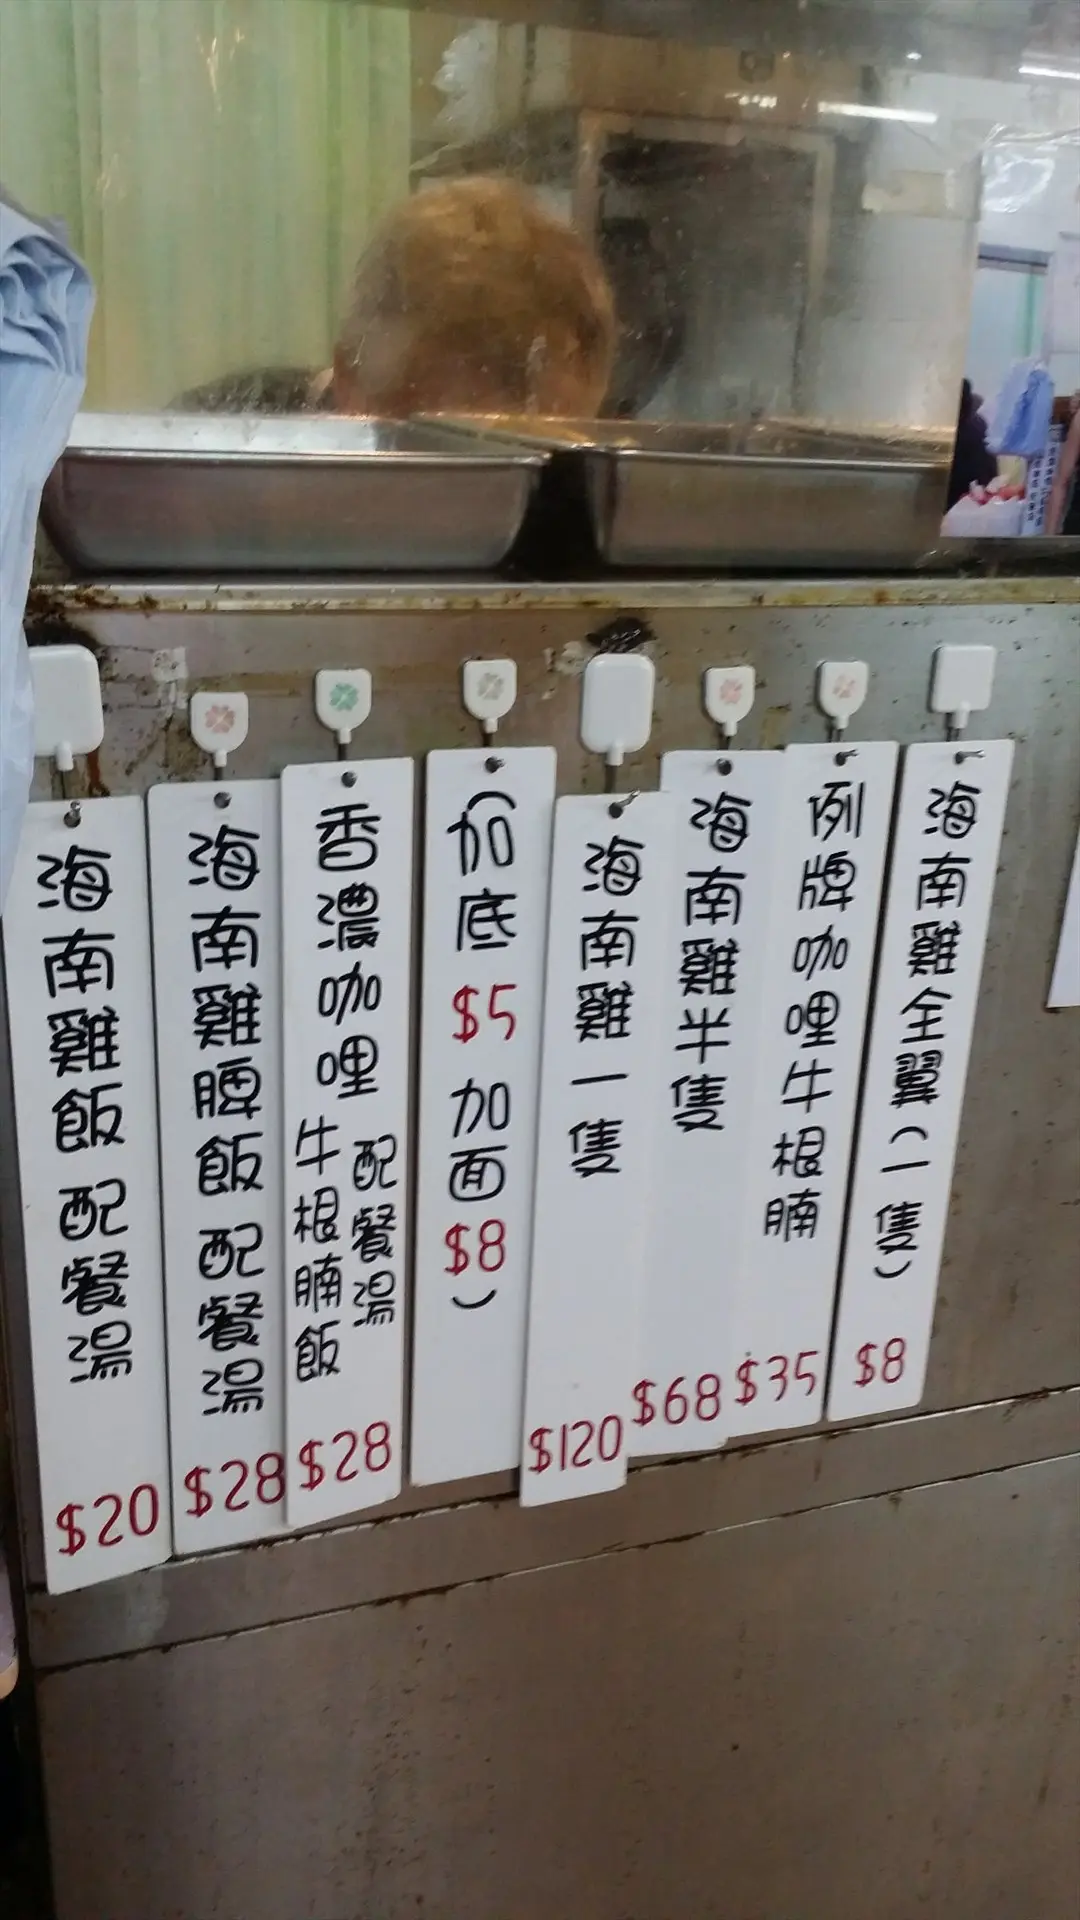 海南雞飯 配餐湯
$20
海南雞髀飯 配餐湯
$28
香濃咖哩
牛根腩飯
配餐湯
$28
(加底 $5 加面 $8)
海南雞一隻
$120
海南雞半隻
$68
例牌咖哩牛根腩
$35
海南雞全翼(一隻)
$8